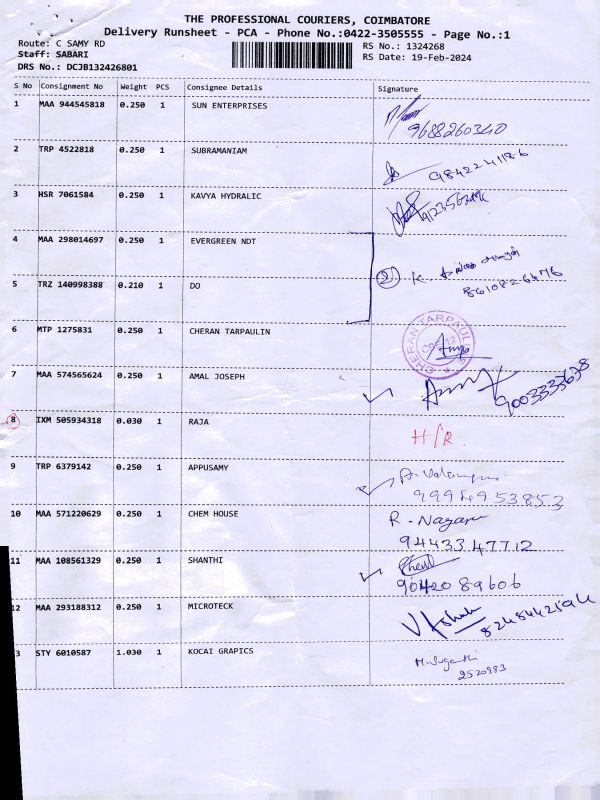 THE PROFESSIONAL COURIERS, COIMBATORE
Delivery Runsheet - PCA - Phone No.:0422-3505555 - Page No.:1
Route: C SAMY RD
RS No.: 1324268
Staff: SABARI
RS Date: 19-Feb-2024
DRS No.: DCJB132426801
S No Consignment No Weight PCS Consignee Details Signature
1 MAA 944545818 0.250 1 SUN ENTERPRISES
9688260340
2 TRP 4522818 0.250 1 SUBRAMANIAM
9842241186
3 HSR 7061584 0.250 1 KAVYA HYDRALIC
4 MAA 298014697 0.250 1 EVERGREEN NDT
2 K
5 TRZ 140998388 0.210 1 DO
8610826476
6 MTP 1275831 0.250 1 CHERAN TARPAULIN
CHERAN TARPAULIN
7 MAA 574565624 0.250 1 AMAL JOSEPH
9003333678
8 IXM 505934318 0.030 1 RAJA H/R
9 TRP 6379142 0.250 1 APPUSAMY
9994953853
10 MAA 571220629 0.250 1 CHEM HOUSE R. Nagaru
9443347712
11 MAA 108561329 0.250 1 SHANTHI
9042089606
12 MAA 293188312 0.250 1 MICROTECK
8248442594
3 STY 6010587 1.030 1 KOCAI GRAPICS M. Suganthi
2520983